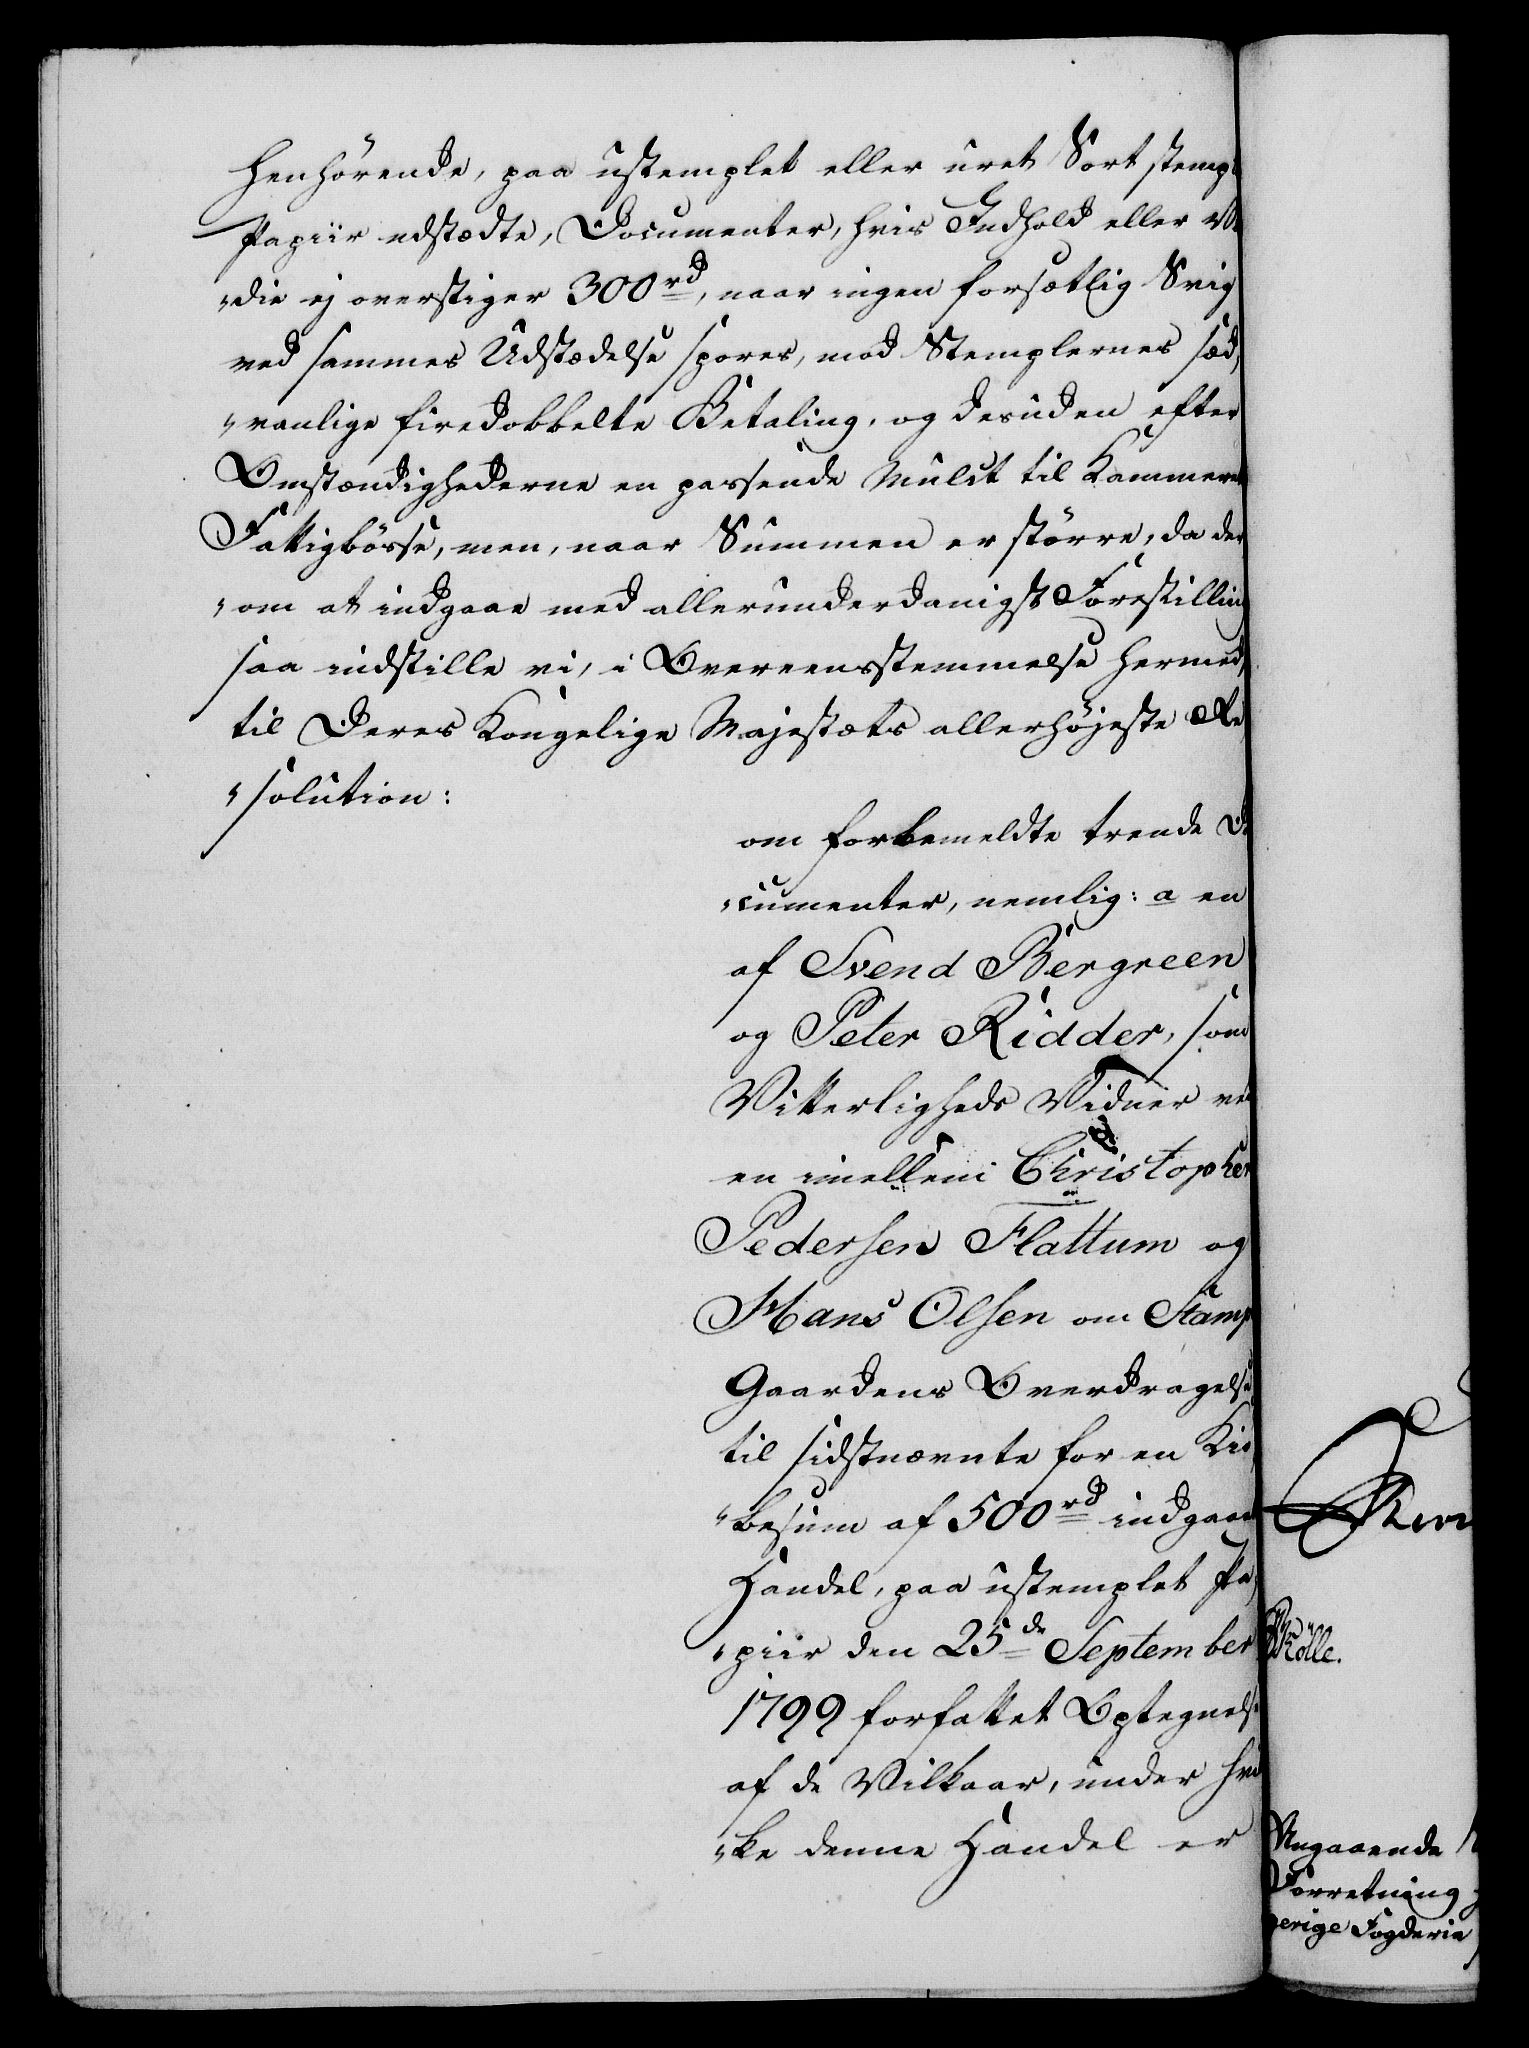 henhörende, paa ustemplet eller uret Sort stempl
Papiir udstædte, Documenter, hvis Indhold eller Væ
„die ej overstiger 300 rd, naar ingen forsætlig Svig
ved sammes Udstædelse spores, mod Stemplernes sæd,
„vanlige firedobbelte Betaling, og desuden efter
Omstændighederne en passende Mulct til Kammerets
Fattigbösse, men, naar Summen er större, da der
„om at indgaae med allerunderdanigst Forestilling
saa indstille vi, i Overeensstemmelse hermed,
til Deres Kongelige Majestæts allerhöjeste Re
„solution:
om forbemeldte trende Do
„cumenter, nemlig: a en
af Svend Bergreen
og Peter Ridder, som
Vitterligheds Vidner ved
en imellem Christopher
Pedersen Flattum og
Hans Olsen om Stamp
Gaardens Overdragelse
til sidstnævnte for en Kiö
„besum af 500 rd indgaaet
Handel, paa ustemplet Pa,
„piir den 25de September
1799 forfattet Optegnelse
af de Vilkaar, under hvil
„ke denne Handel er
Kölle.
Angaaende
Forretning
gerige Fogderie